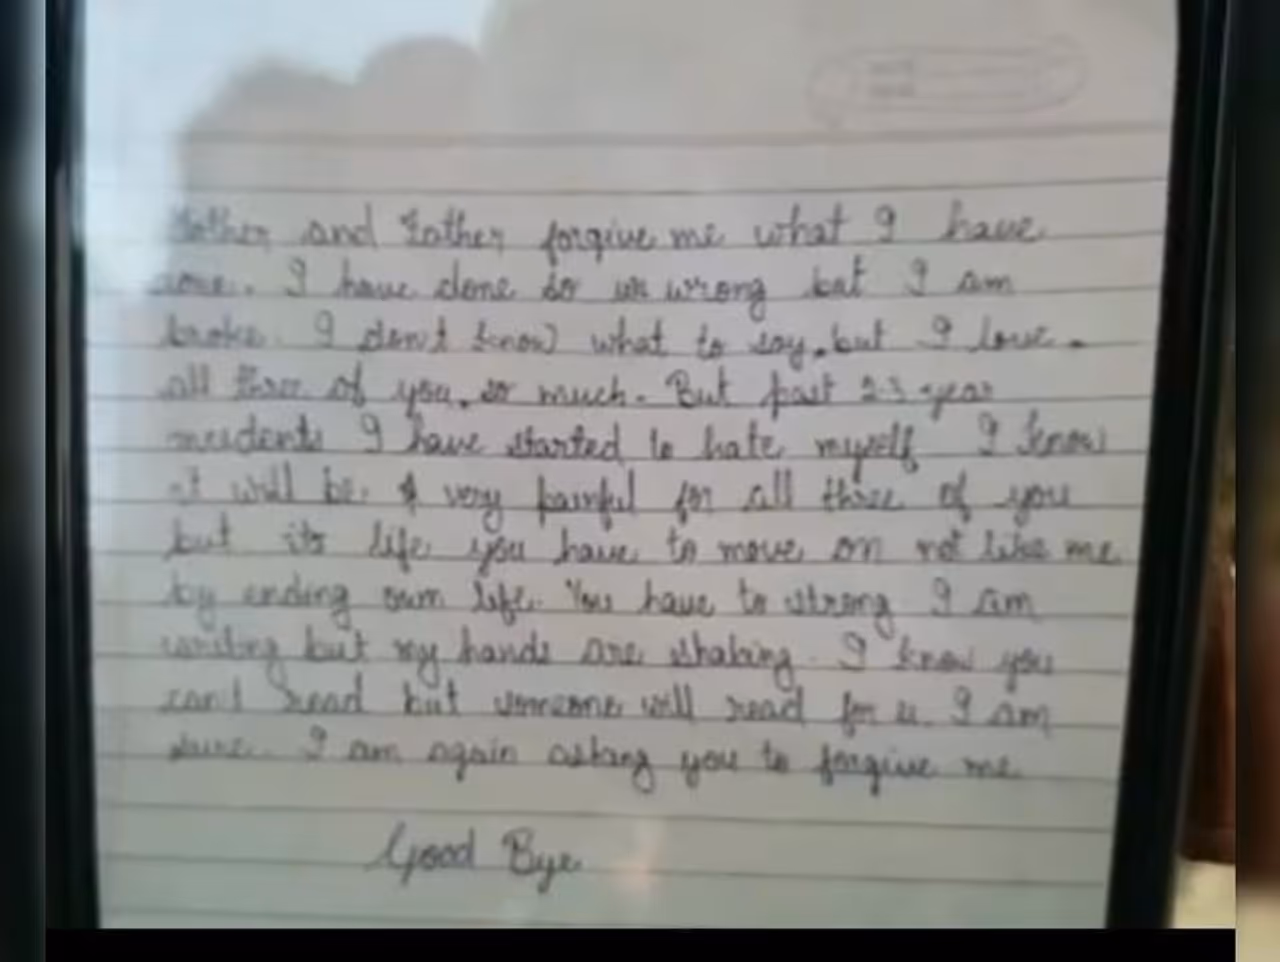 Mother and Father forgive me what I have
done. I have done so us wrong but I am
broke. I don't know what to say, but I love
all three of you so much. But past 2-3 year
incidents I have started to hate myself I know
it will be very painful for all three of you
but its life you have to move on not like me
by ending own life. You have to strong I am
writing but my hands are shaking. I know you
can't read but someone will read for u. I am
sure. I am again asking you to forgive me
Good Bye